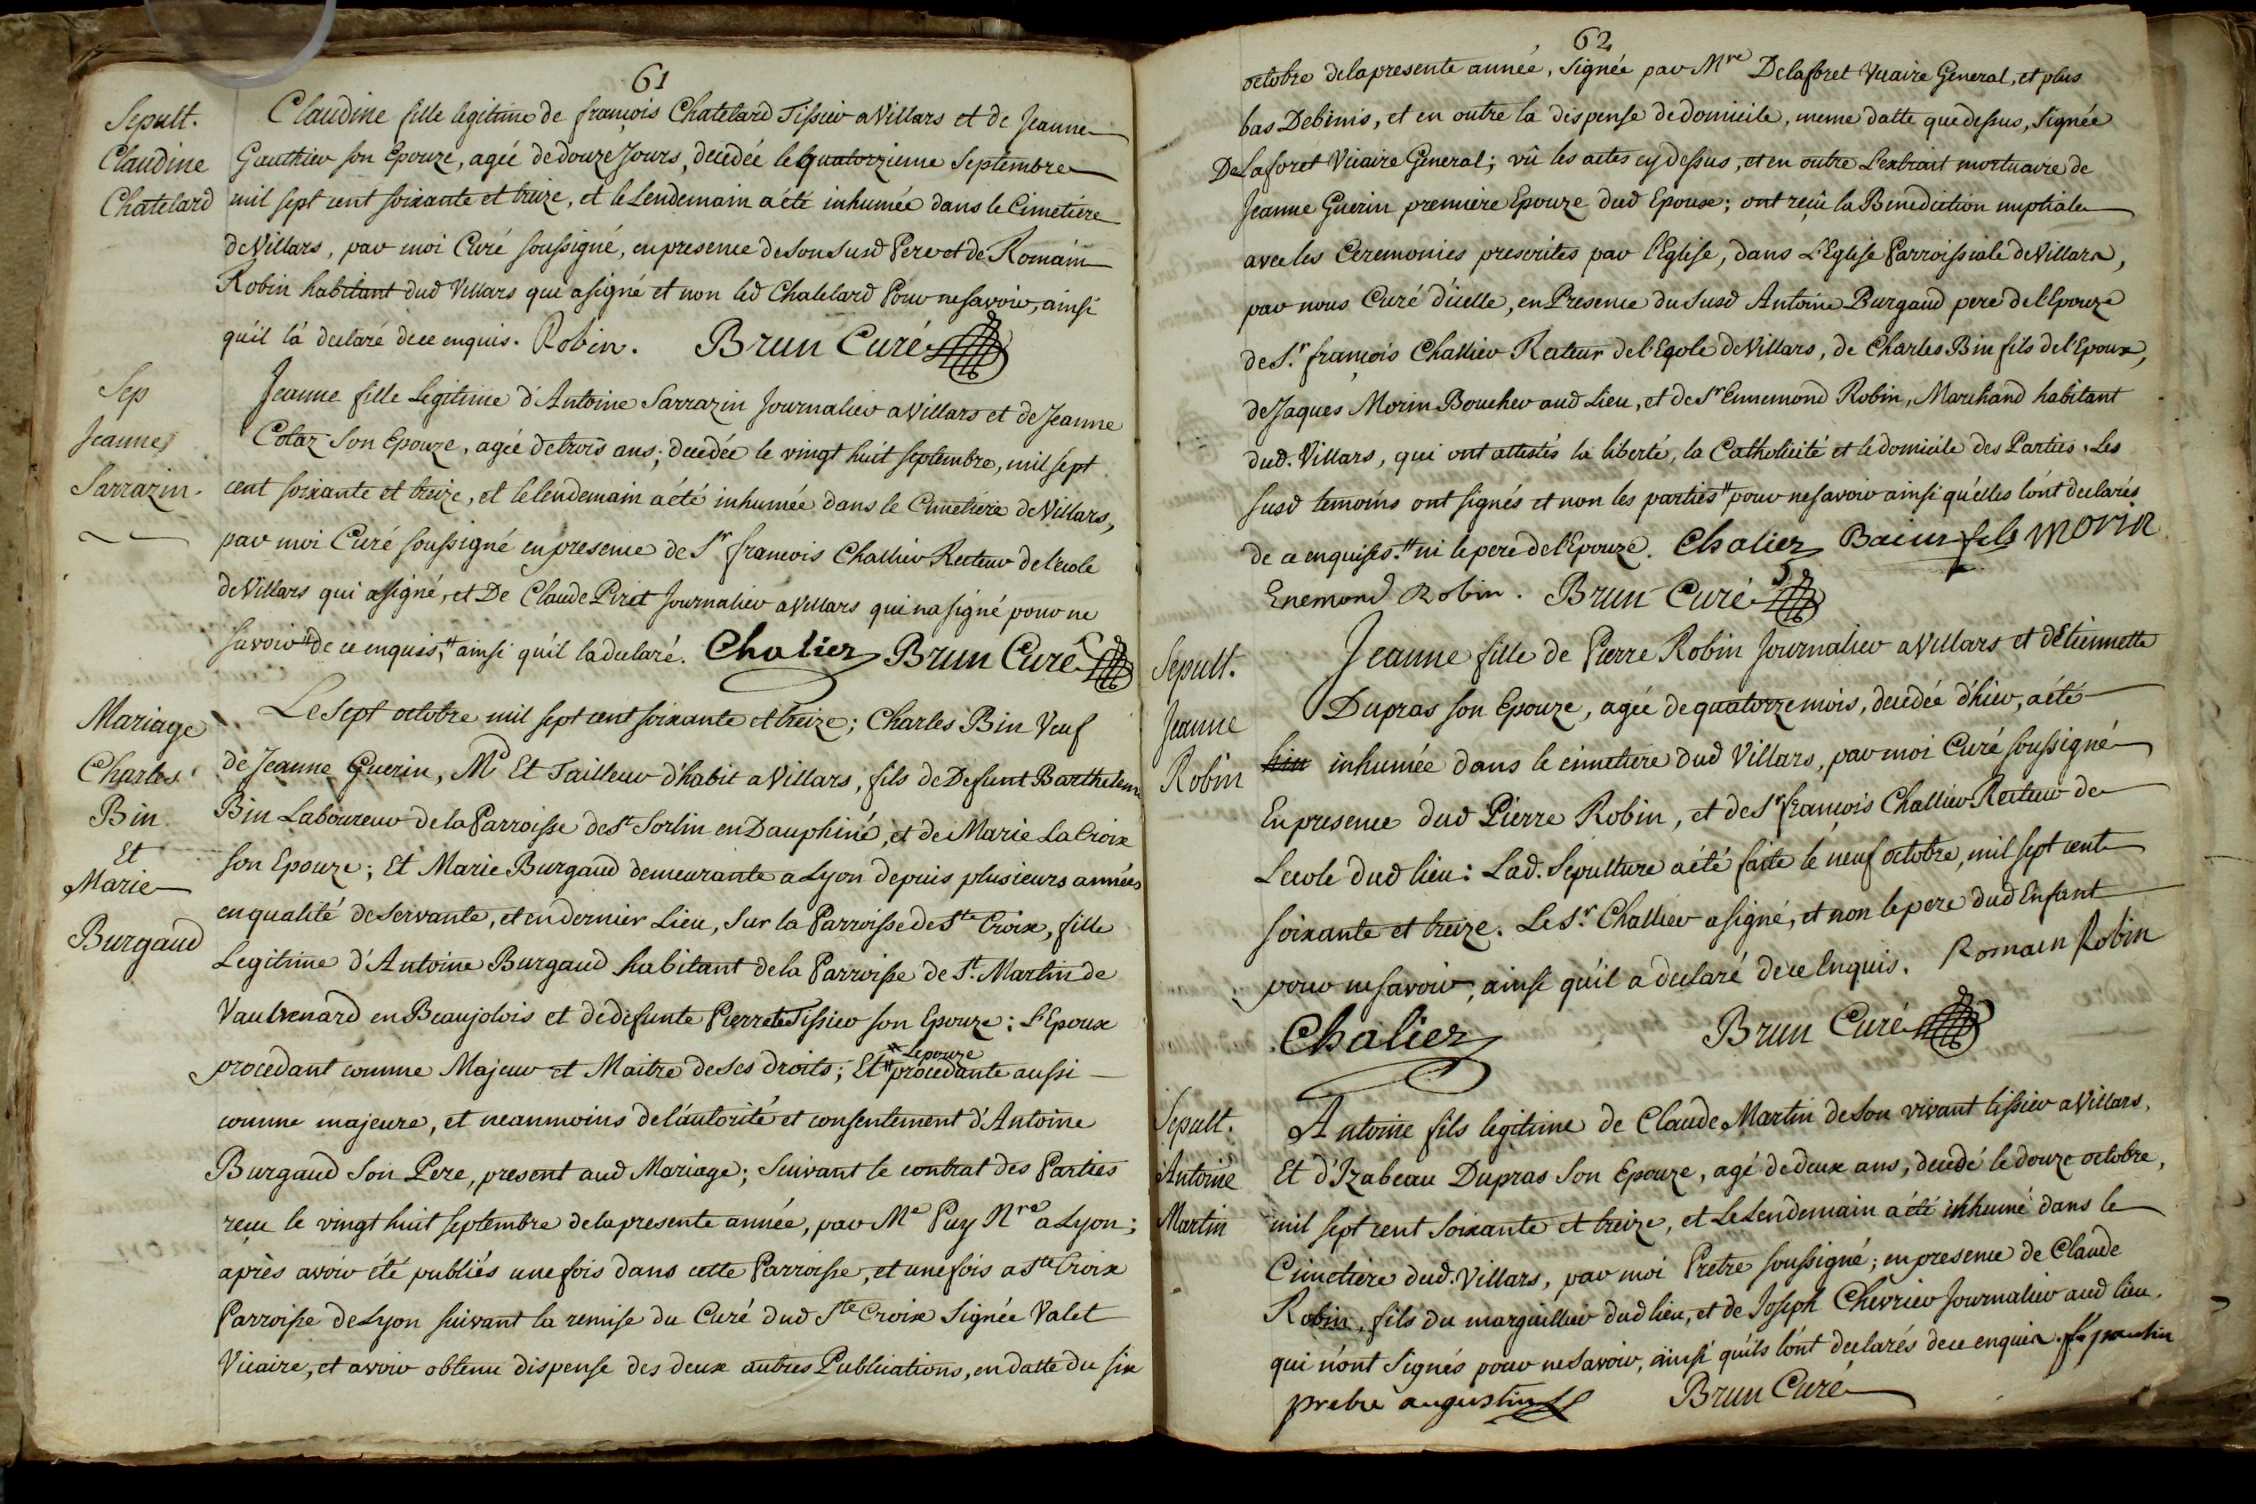 61
Sepult.
Claudine
Chatelard
Claudine fille legitime de françois Chatelard Tissier a Villars et de Jeanne
Gauthier son Epouze, agée de douze Jours, decedée le quatorzieme Septembre
mil sept cent soixante et treize, et le Lendemain a été inhumée dans le Cimetiere
de Villars, par moi Curé soussigné, en presence de son susd Pere et de Romain
Robin habitant dud Villars qui a signé et non led Chatelard Pour ne savoir, ainsi
qu'il la declaré de ce enquis. Robin. Brun Curé
Sep
Jeanne
Sarrazin.
Jeanne fille Legitime d'Antoine Sarrazin Journalier a Villars et de Jeanne
Colaz son Epouze, agée de trois ans; decedée le vingt huit septembre, mil sept
cent soixante et treize, et le lendemain a été inhumée dans le Cimetiere de Villars,
par moi Curé soussigné en presence de Sr francois Challier Recteur de l'ecole
de Villars qui a signé, et De Claude Piret Journalier a Villars qui na signé pour ne
savoir " de ce enquis, " ainsi qu'il la declaré. Chalier Brun Curé
Mariage
Charles
Bin
Et
Marie
Burgaud
Le Sept octobre mil sept cent soixante et treize; Charles Bin Veuf
de Jeanne Guerin, Md Et Tailleur d'habit a Villars, fils de Defunt Barthelem
Bin Laboureur de la Parroisse de St Sorlin en Dauphiné, et de Marie La Croix
son Epouze; Et Marie Burgaud demeurante a Lyon depuis plusieurs années
en qualité de servante, et en dernier Lieu, sur la Parroisse de Ste Croix, fille
Legitime d'Antoine Burgaud habitant de la Parroisse de St. Martin de
Vauxrenard en Beaujolois et de defunte Pierrette Tissier son Epouze; L'Epoux
procedant comme Majeur et Maitre de ses droits; Et " procedante aussi
" Lepouze
comme majeure, et neanmoins de l'autorité et consentement d'Antoine
Burgaud son Pere, present aud Mariage; suivant le contrat des Parties
reçu le vingt huit septembre de la presente année, par Me Puy Nre a Lyon;
après avoir été publiés une fois dans cette Parroisse, et une fois a Ste Croix
Parroisse de Lyon suivant la remise du Curé dud Ste Croix Signée Valet
Vicaire, et avoir obtenu dispense des deux autres Publications, en datte du six
62
octobre de la presente année, signée par Mre Delaforet Vicaire General, et plus
bas Debinis, et en outre la dispense de domicile, meme datte que dessus, signée
De Laforet Vicaire General; vû les actes cy dessus, et en outre L'extrait mortuaire de
Jeanne Guerin premiere Epouze dud Epoux; ont reçû la Benediction nuptiale
avec les Ceremonies prescrites par l'Eglise, dans L'Eglise Parroissiale de Villars,
par nous Curé d'icelle, en Presence du susd Antoine Burgaud pere de l'Epouze
de Sr. françois Challier Recteur de l'Ecole de Villars, de Charles Bin fils de l'Epoux,
de Jaques Morin Boucher aud Lieu, et de Sr Ennemond Robin, Marchand habitant
dud. Villars, qui ont attestés la liberté, la Catholicité et le domicile des Parties. Les
susd temoins ont signés et non les parties " pour ne savoir ainsi qu'elles l'ont declarés
de ce enquises. " ni le pere de l'Epouze. Chalier fils Morin
Enemond Robin. Brun Curé
Sepult.
Jeanne
Robin
Jeanne fille de Pierre Robin Journalier a Villars et d'Etiennette
Dupras son Epouze, agée de quatorze mois, decedée d'hier, a été
inhumée dans le cimetiere dud Villars, par moi Curé soussigné
En presence dud Pierre Robin, et de Sr françois Challier Recteur de
L'ecole dud lieu: Lad. Sepulture a été faite le neuf octobre, mil sept cent
soixante et treize. Le Sr. Challier a signé, et non le pere dud Enfant
pour ne savoir, ainsi qu'il a declaré de ce Enquis. Romain Robin
Chalier Brun Curé
Sepult.
Antoine
Martin
Antoine fils legitime de Claude Martin de son vivant tissier a Villars,
Et d'Izabeau Dupras son Epouze, agé de deux ans, decedé le douze octobre,
mil sept cent soixante et treize, et Le Lendemain a été inhumé dans le
Cimetiere dud. Villars, par moi Pretre soussigné; en presence de Claude
Robin, fils du marguillier dud lieu, et de Joseph Chevrier Journalier aud lieu.
qui n'ont signés pour ne savoir, ainsi qu'ils l'ont declarés de ce enquis.
prebre augustin Brun Curé